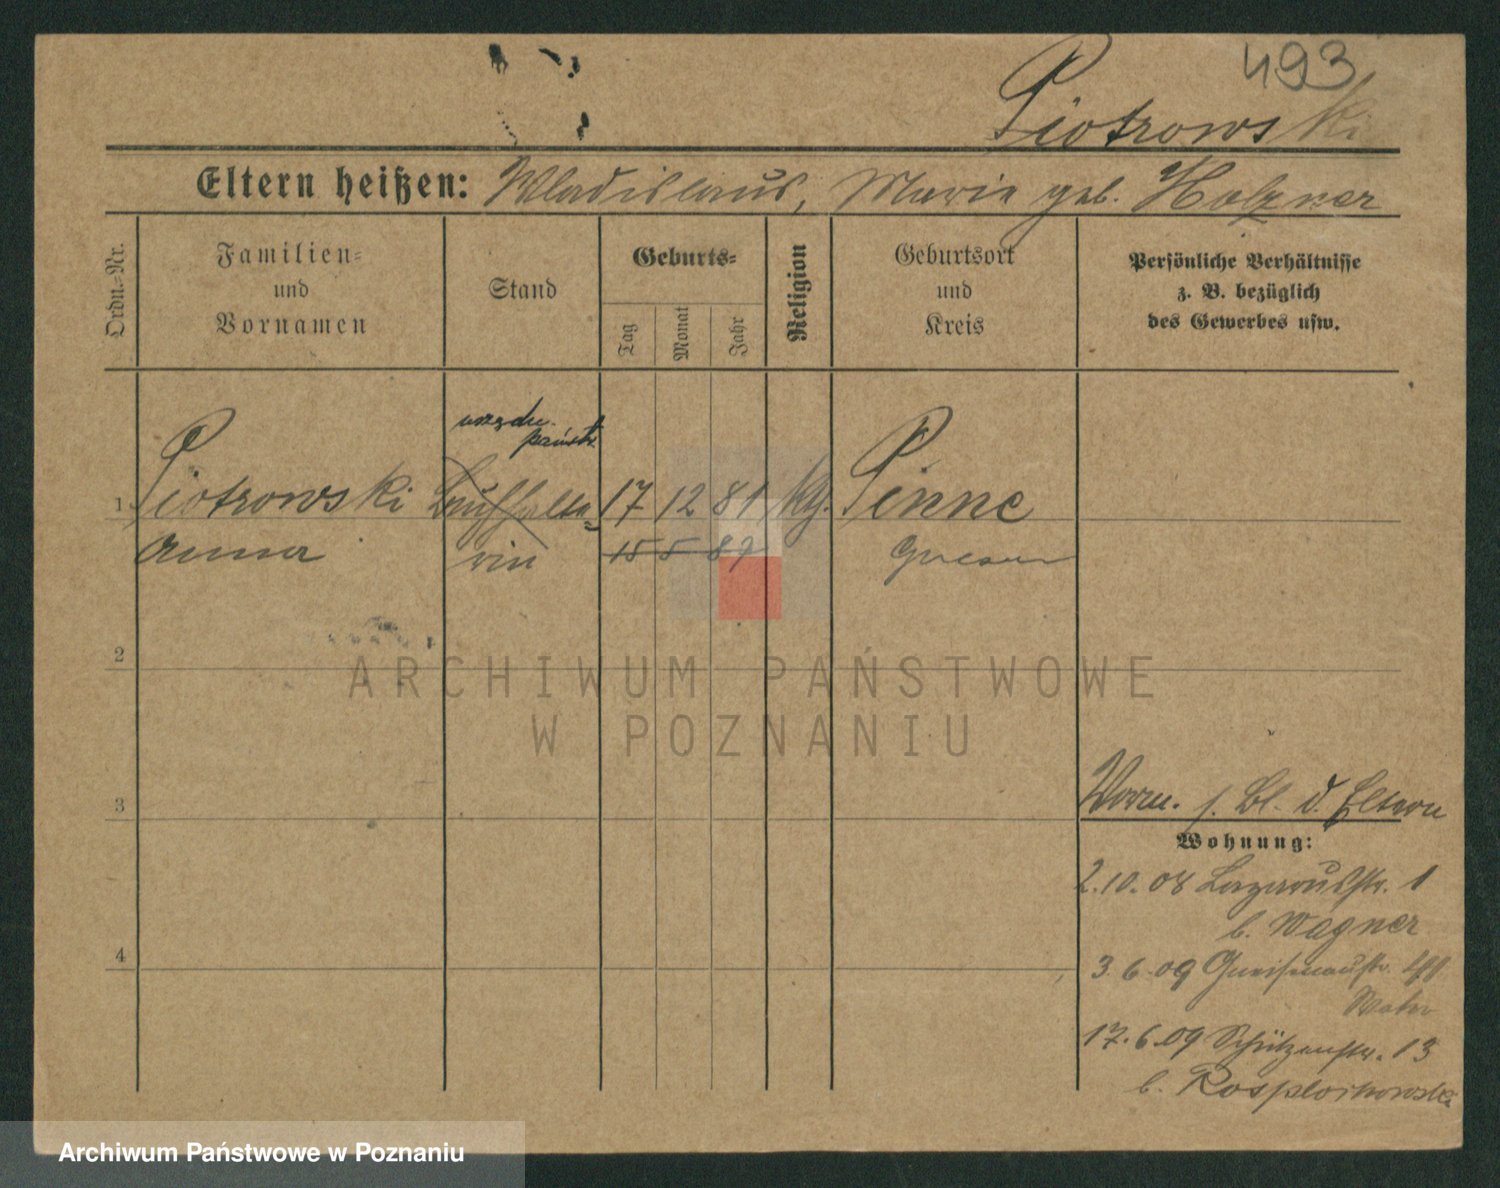 493
Piotrowski
Eltern heißen: Wladislaus, Marie geb. Holzner
Ordn.-Nr.
Familien-
und
Vornamen
Stand
Geburts-
Tag
Monat
Jahr
Religion
Geburtsort
und
Kreis
Persönliche Verhältnisse
z. B. bezüglich
des Gewerbes usw.
1 Piotrowski 17 12 81 Pinne
Anna 15 5 87 Gnesen
2
3
Vorm. s. Bl. d. Eltern
Wohnung:
2.10.08 Lazarusstr. 1
b. Wagner
4
3.6.09 Gneisenaustr.
17.6.09 Schützenstr. 13
b.
ARCHIWUM PAŃSTWOWE
W POZNANIU
Archiwum Państwowe w Poznaniu